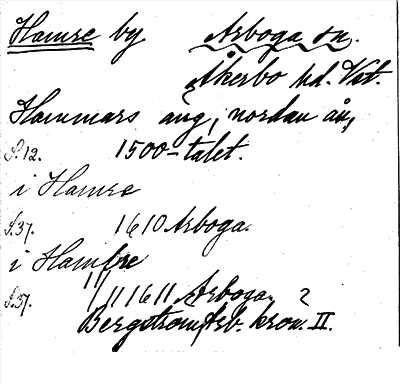 Hamre by Arboga sn.
Åkerbo hd. Vstl.
Hammars äng, nordan ån,
S.12. 1500-talet.
i Hamre
S.37. 1610 Arboga.
i Hamfre
S.37. 11/11 1611 Arboga. ?
Bergström Arb. krön. II.